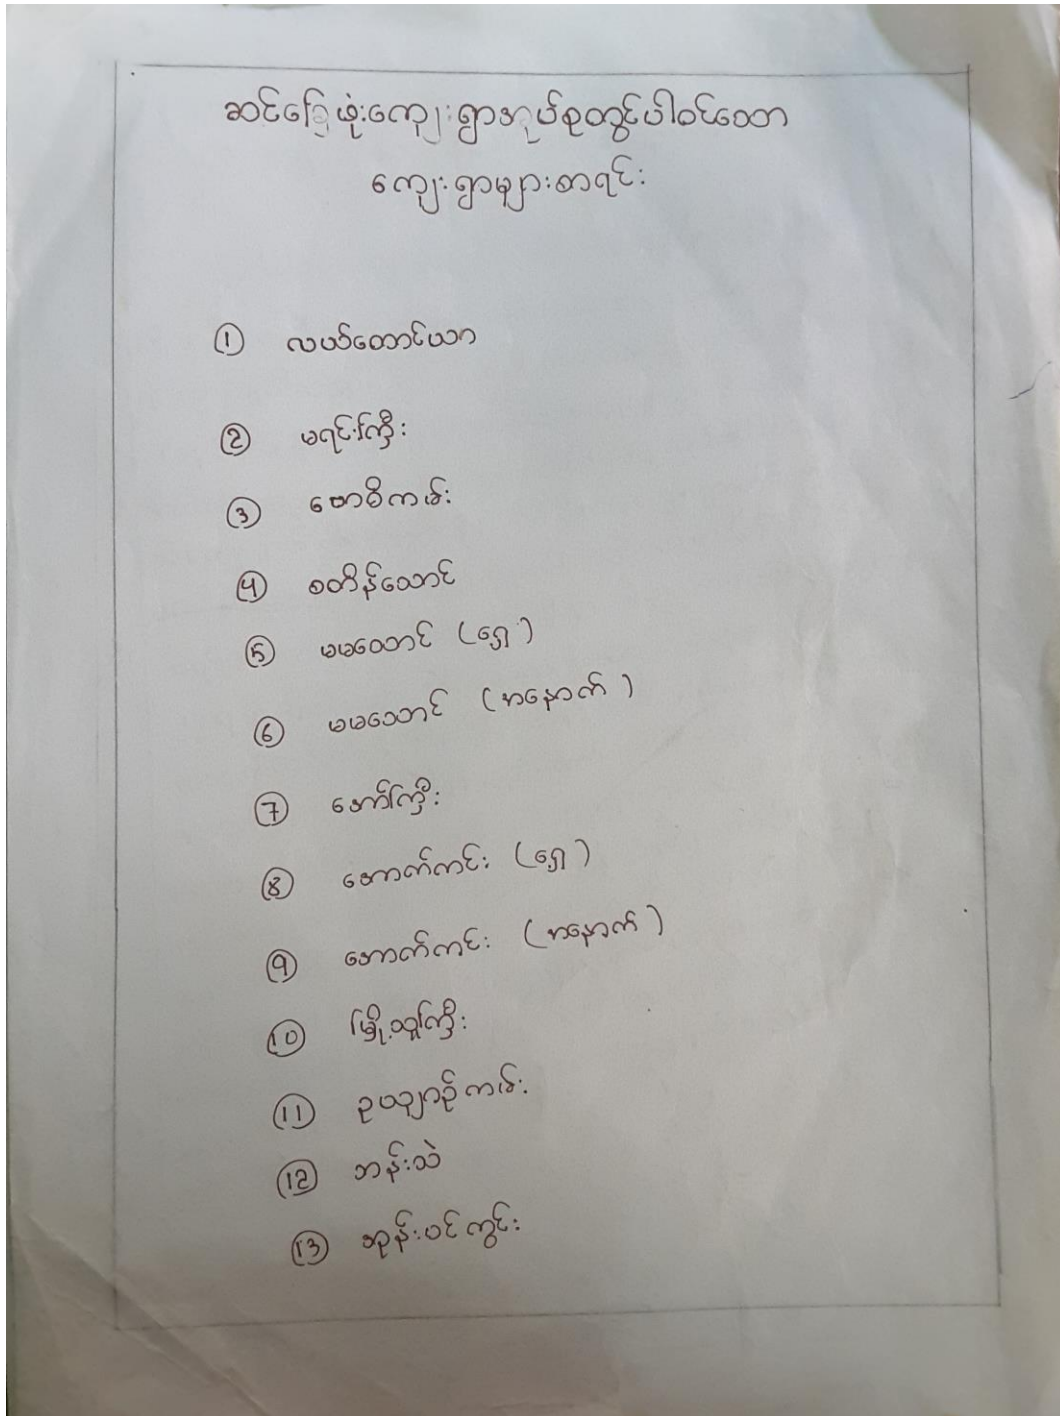 ဆင်ခြေဖုံးကျေးရွာအုပ်စုတွင်ပါဝင်သော
ကျေးရွာများစာရင်း
① လယ်တောင်ယာ
② မရင်းကြီး
③ ဗောဓိကမ်း
④ စတိန်ထောင်
⑤ မမထောင် (ရှေ့)
⑥ မမထောင် (အနောက်)
⑦ အော်ကြီး
⑧ အောက်ကင်း (ရှေ့)
⑨ အောက်ကင်း (အနောက်)
⑩ မြို့သူကြီး
⑪ ဥယျာဉ်ကမ်း
⑫ ဘန်းသဲ
⑬ အုန်းပင်ကွင်း